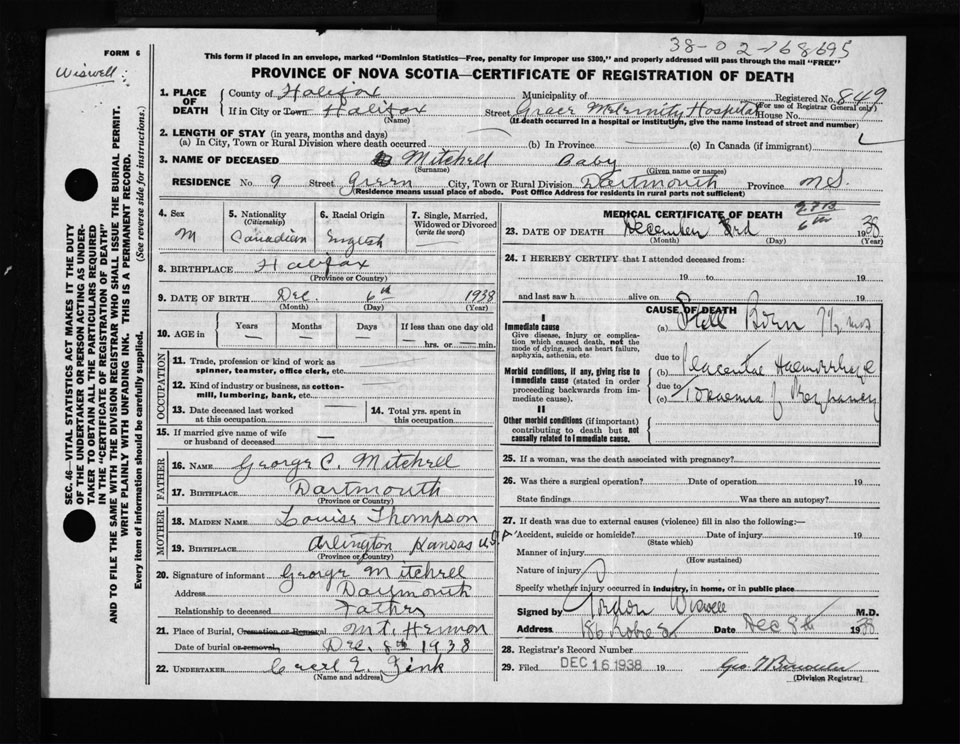 38-02-168695
FORM 6
Wiswell
This form if placed in an envelope, marked "Dominion Statistics—Free, penalty for improper use $300," and properly addressed will pass through the mail "FREE"
PROVINCE OF NOVA SCOTIA—CERTIFICATE OF REGISTRATION OF DEATH
1. PLACE OF DEATH
County of Halifax Municipality of Registered No. 849
(For use of Registrar General only)
If in City or Town Halifax Street Grace Maternity Hospital House No.
(Name) (If death occurred in a hospital or institution, give the name instead of street and number)
2. LENGTH OF STAY (in years, months and days)
(a) In City, Town or Rural Division where death occurred (b) In Province — (c) In Canada (if immigrant)
3. NAME OF DECEASED Mitchell Baby
(Surname) (Given name or names)
RESIDENCE No. 9 Street Green City, Town or Rural Division Dartmouth Province N.S.
(Residence means usual place of abode. Post Office Address for residents in rural parts not sufficient)
4. Sex M
5. Nationality (Citizenship) Canadian
6. Racial Origin English
7. Single, Married, Widowed or Divorced (write the word)
8. BIRTHPLACE Halifax
(Province or Country)
9. DATE OF BIRTH Dec. 6th 1938
(Month) (Day) (Year)
10. AGE in Years — Months — Days — If less than one day old — hrs. or — min.
OCCUPATION
11. Trade, profession or kind of work as spinner, teamster, office clerk, etc. —
12. Kind of industry or business, as cotton-mill, lumbering, bank, etc. —
13. Date deceased last worked at this occupation —
14. Total yrs. spent in this occupation
15. If married give name of wife or husband of deceased —
FATHER
16. NAME George C. Mitchell
17. BIRTHPLACE Dartmouth
(Province or Country)
MOTHER
18. MAIDEN NAME Louise Thompson
19. BIRTHPLACE Arlington Kansas U.S.A
(Province or Country)
20. Signature of informant George Mitchell
Address Dartmouth
Relationship to deceased Father
21. Place of Burial, Cremation or Removal Mt. Hermon
Date of burial or removal, Dec. 8th 1938
22. UNDERTAKER Cecil E. Zink
(Name and address)
MEDICAL CERTIFICATE OF DEATH
6th
23. DATE OF DEATH December 3rd 1938
(Month) (Day) (Year)
24. I HEREBY CERTIFY that I attended deceased from:
19 to 19
and last saw h alive on 19
CAUSE OF DEATH
I
Immediate cause
Give disease, injury or complication which caused death, not the mode of dying, such as heart failure, asphyxia, asthenia, etc.
(a) Still Born 7½ mos
due to
Morbid conditions, if any, giving rise to immediate cause (stated in order proceeding backwards from immediate cause).
(b) Placental Haemorrhage
due to
(c) Toxaemia of Pregnancy
II
Other morbid conditions (if important) contributing to death but not causally related to immediate cause.
25. If a woman, was the death associated with pregnancy?
26. Was there a surgical operation? Date of operation 19
State findings Was there an autopsy?
27. If death was due to external causes (violence) fill in also the following:—
Accident, suicide or homicide? Date of injury 19
(State which)
Manner of injury
(How sustained)
Nature of injury
Specify whether injury occurred in industry, in home, or in public place
Signed by Gordon Wiswell M.D.
Address 186 Robie St Date Dec 8th 1938
28. Registrar's Record Number
29. Filed DEC 16 1938 19
(Division Registrar)
SEC. 46—VITAL STATISTICS ACT MAKES IT THE DUTY OF THE UNDERTAKER OR PERSON ACTING AS UNDERTAKER TO OBTAIN ALL THE PARTICULARS REQUIRED IN THE "CERTIFICATE OF REGISTRATION OF DEATH" AND TO FILE THE SAME WITH THE DIVISION REGISTRAR WHO SHALL ISSUE THE BURIAL PERMIT.
WRITE PLAINLY WITH UNFADING INK. THIS IS A PERMANENT RECORD.
Every item of information should be carefully supplied. (See reverse side for instructions.)